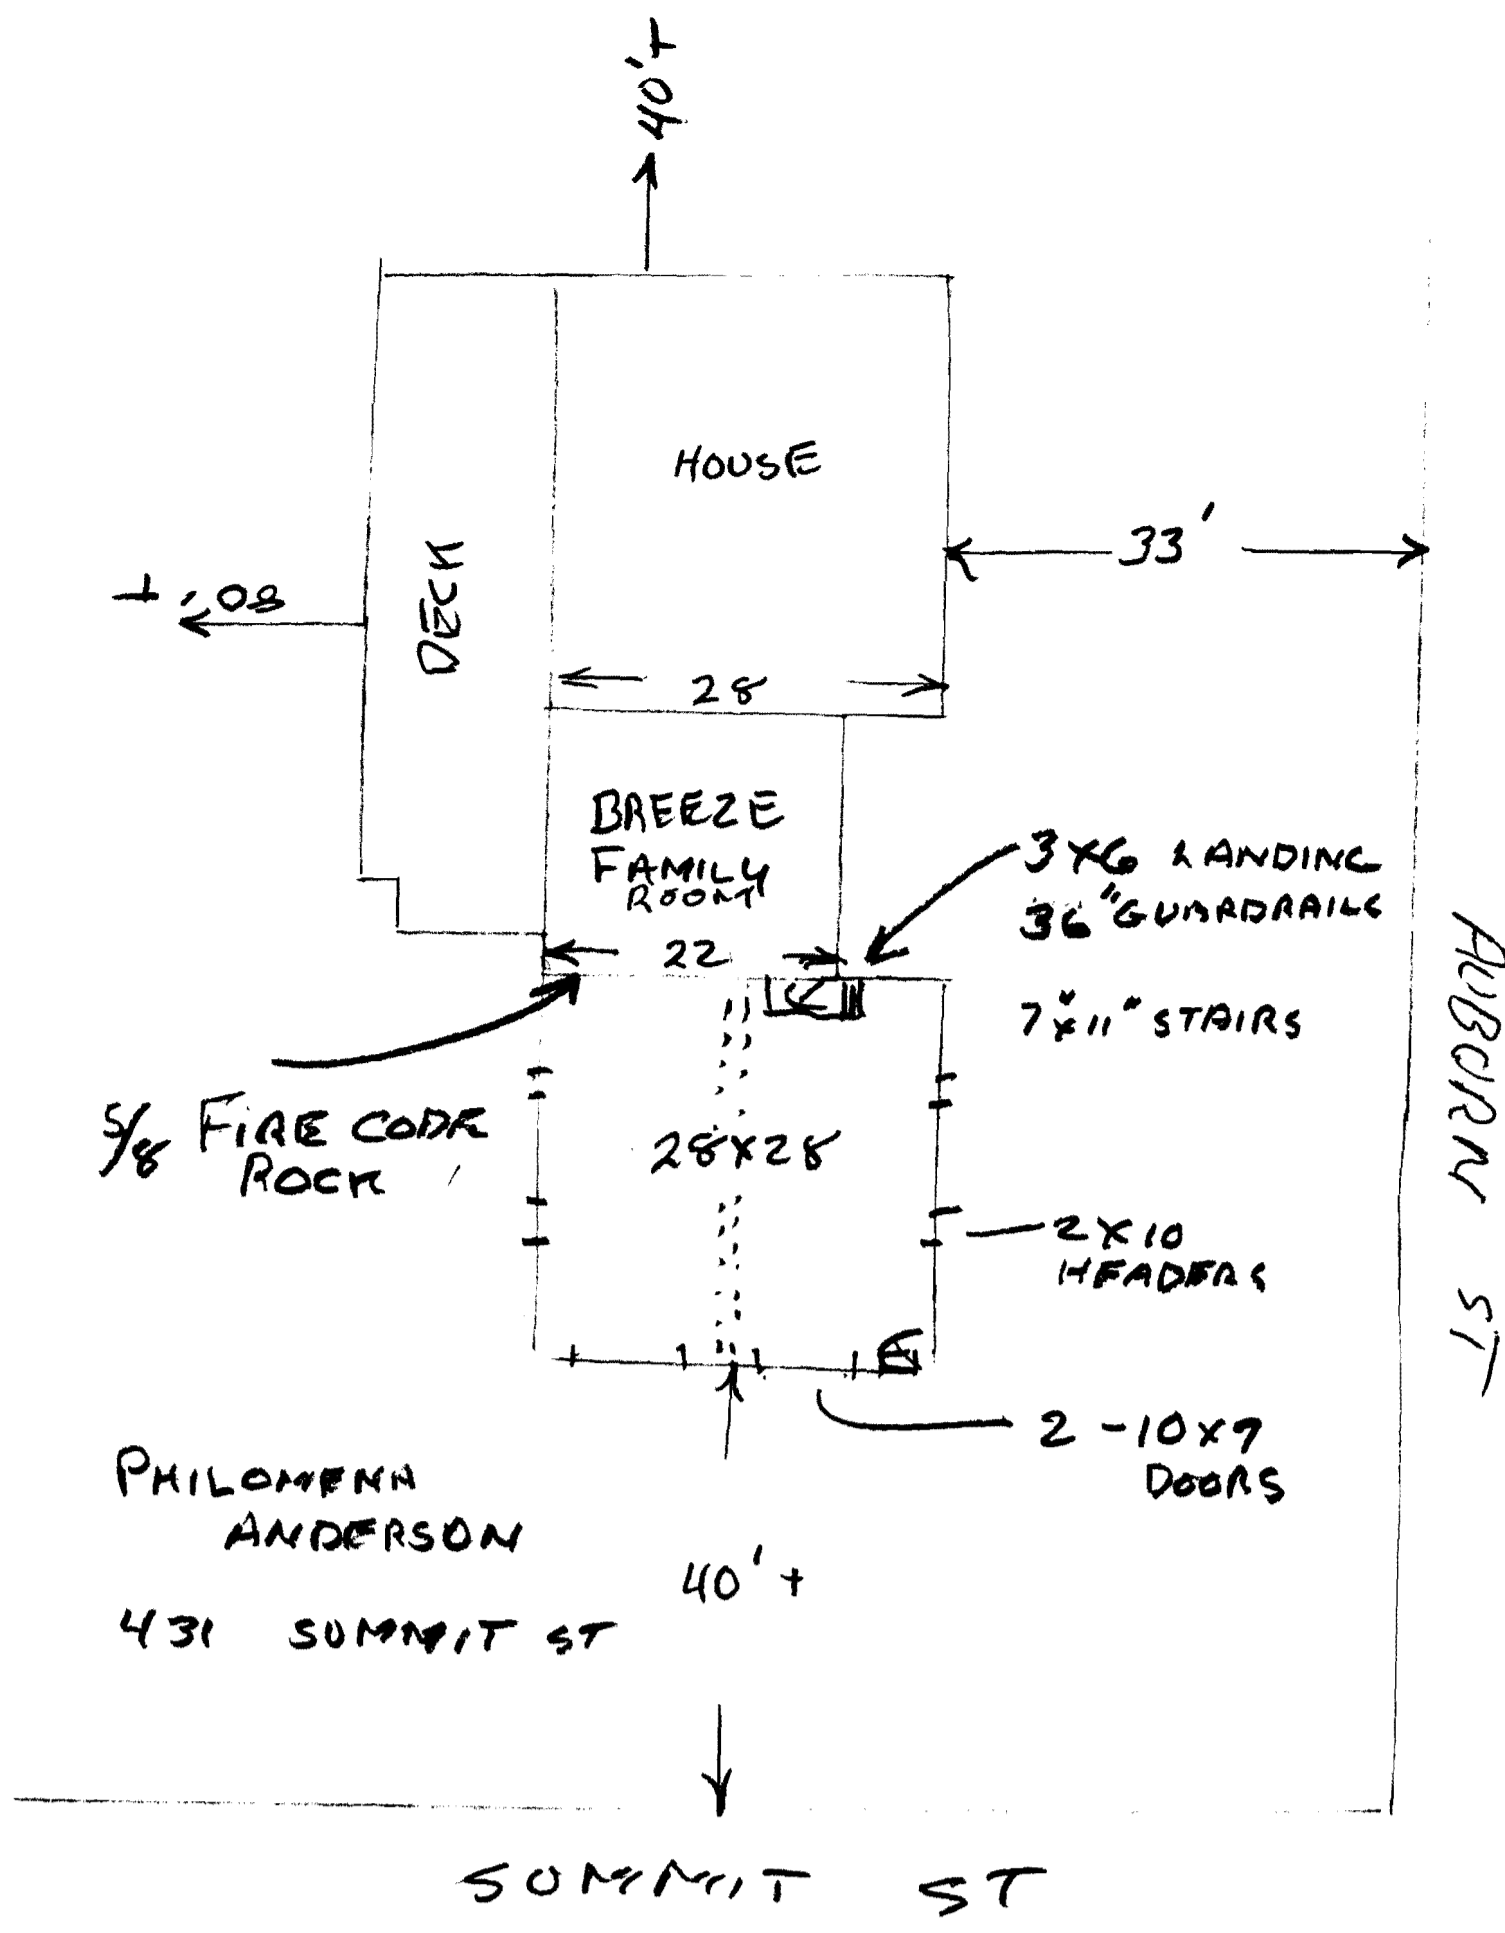 40'+
HOUSE
33'
80'+
DECK
28
BREEZE
FAMILY
ROOM
22
3X6 LANDING
36" GUARDRAILS
7"x11" STAIRS
AUBURN ST
5/8 FIRE CODE
ROCK
28X28
2X10
HEADERS
2-10x7
DOORS
PHILOMENA
ANDERSON
40'+
431 SUMMIT ST
SUMMIT ST